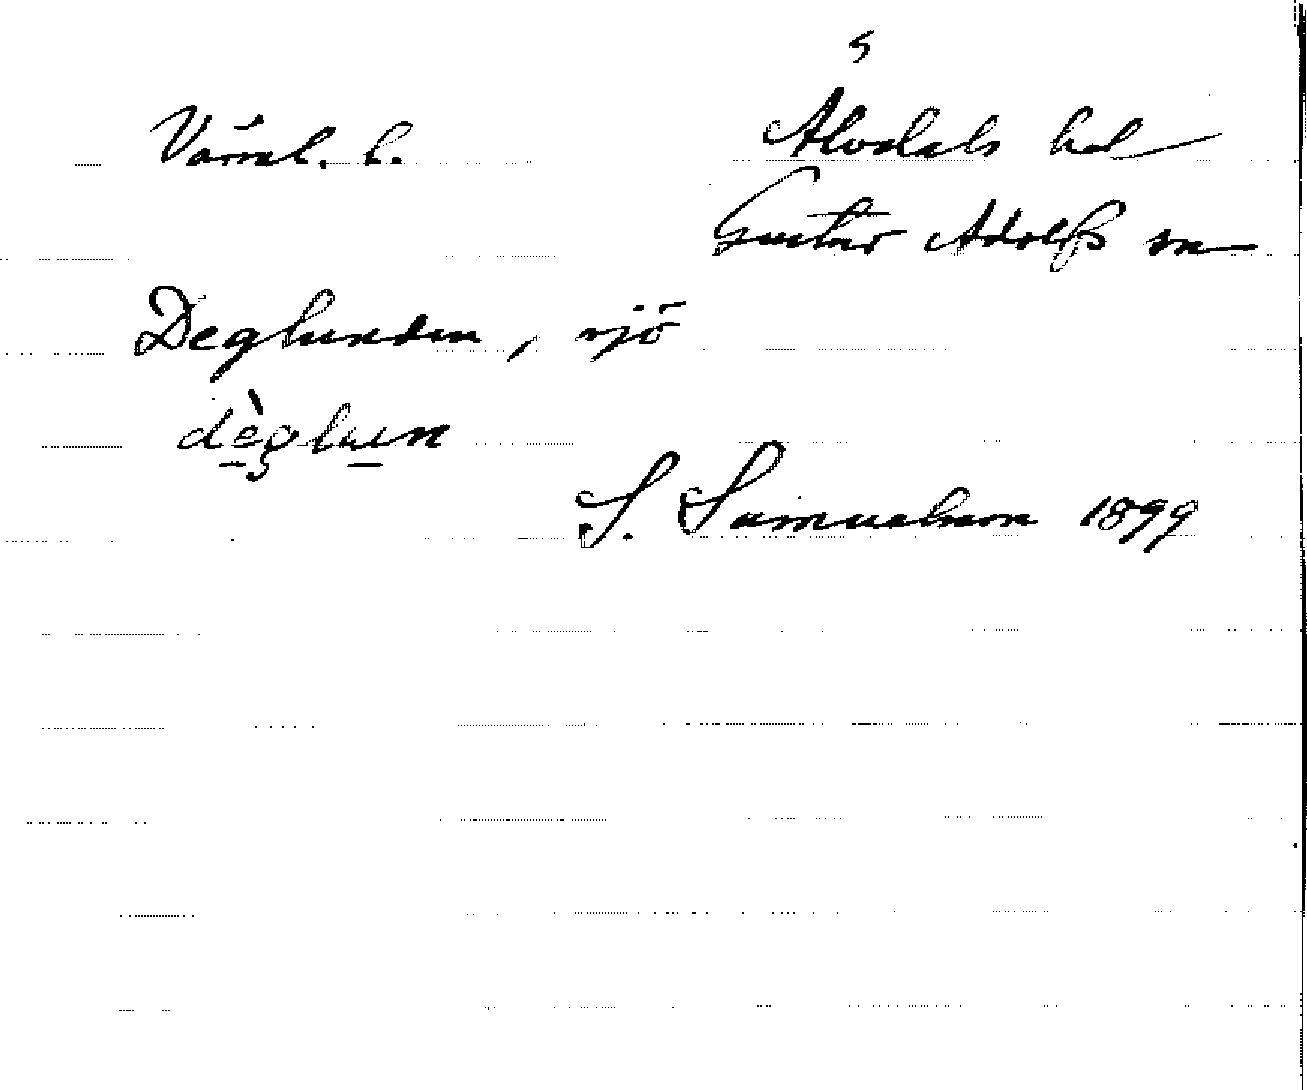 5
Värml. l. Älvdals hd
Gustav Adolfs sn
Deglunden, sjö
dèglun
S. Samuelsson 1899